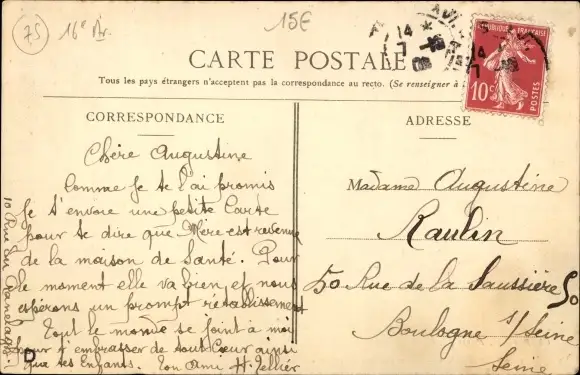 75
16e Ar.
15E
CARTE POSTALE
Tous les pays étrangers n'acceptent pas la correspondance au recto. (Se renseigner à
RÉPUBLIQUE FRANÇAISE
10c
POSTES
14
7
CORRESPONDANCE
Chère Augustine
Comme je te l'ai promis
je t'envoie une petite Carte
pour te dire que Mère est revenue
de la maison de Santé. Pour
le moment elle va bien et nous
espérons un prompt rétablissement
Tout le monde se joint à moi
pour t'embrasser de tout Cœur ainsi
que tes Enfants. Ton Ami H. Tellier
10 Rue du Ranelagh
D
ADRESSE
Madame Augustine
Raulin
50 Rue de la Saussière 50
Boulogne s/Seine
Seine